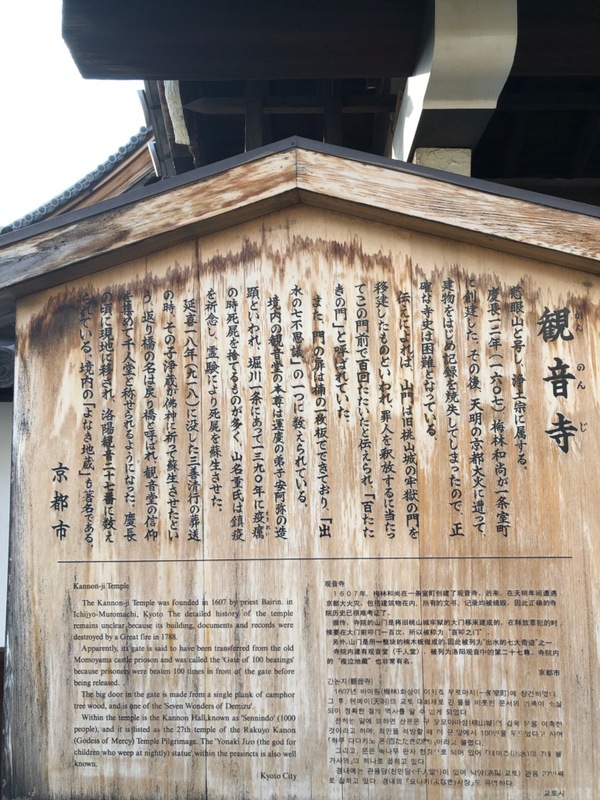 観音寺
かん のん じ
慈眼山と号し、浄土宗に属する。
慶長一二年（一六〇七）梅林和尚が一条室町
に創建した。その後、天明の京都大火に遭って、
建物をはじめ記録を焼失してしまったので、正
確な寺史は困難となっている。
伝えによれば、山門は旧桃山城の牢獄の門を
移建したものといわれ、罪人を釈放するに当たっ
てこの門前で百回たたいたと伝えられ、「百たた
きの門」と呼ばれていた。
また、門の扉は楠の一枚板でできており、「出
水の七不思議」の一つに数えられている。
境内の観音堂の本尊は運慶の弟子安阿弥の造
顕といわれ、堀川一条にあって一三九〇年に疫癘
の時死屍を捨てるものが多く、山名重氏は鎮疫
を祈念し、霊験により死屍を蘇生させた。
延喜一八年（九一八）に没した三善清行の葬送
の時、その子浄蔵が佛神に祈って蘇生させたとい
う、返り橋の名は戻り橋と呼ばれ、観音堂の信仰
を集めて千人堂と称せられるようになった。慶長
の頃に現地に移され、洛陽観音二十七番に数え
られている。境内の「よなき地蔵」も著名である。
京都市
Kannon-ji Temple
The Kannon-ji Temple was founded in 1607 by priest Bairin. in
Ichijyo-Muromachi, Kyoto The detailed history of the temple
remains unclear because its building, documents and records were
destroyed by a Great fire in 1788.
Apparently, its gate is said to have been transferred from the old
Momoyama castle priosn and was called the 'Gate of 100 beatings'
because prisoners were beaten 100 times in front of the gate before
being released.
The big door in the gate is made from a single plank of camphor
tree wood, and is one of the 'Seven Wonders of Demizu'.
Within the temple is the Kannon Hall,known as 'Sennindo' (1000
people), and it is listed as the 27th temple of the Rakuyo Kanon
(Godess of Mercy) Temple Pilgrimage. The 'Yonaki Jizo (the god for
children who weep at nightly) statue within the presincts is also well
known.
Kyoto City
观音寺
1607年，梅林和尚在一条室町创建了观音寺。后来，在天明年间遭遇
京都大火灾，包括建筑物在内，所有的文书、记录均被烧毁，因此正确的寺
院历史已很难考证了。
据传，寺院的山门是将旧桃山城牢狱的大门移来建成的，在释放罪犯的时
候要在大门前叩一百次，所以被称为“百叩之门”。
另外,山门是用一整块的楠木板做成的,因此被列为“出水的七大奇迹”之一
寺院内建有观音堂（千人堂），被列为洛阳观音中的第二十七尊。寺院内
的“夜泣地藏”也非常有名。
京都市
간논지(観音寺)
교토시